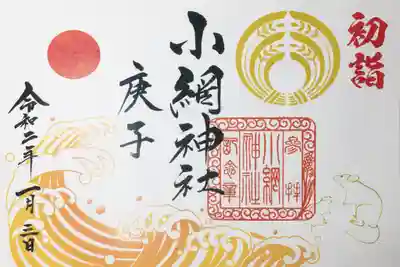 初詣
小網神社
庚子
令和二年 一月 三日
参拝
小網
神社